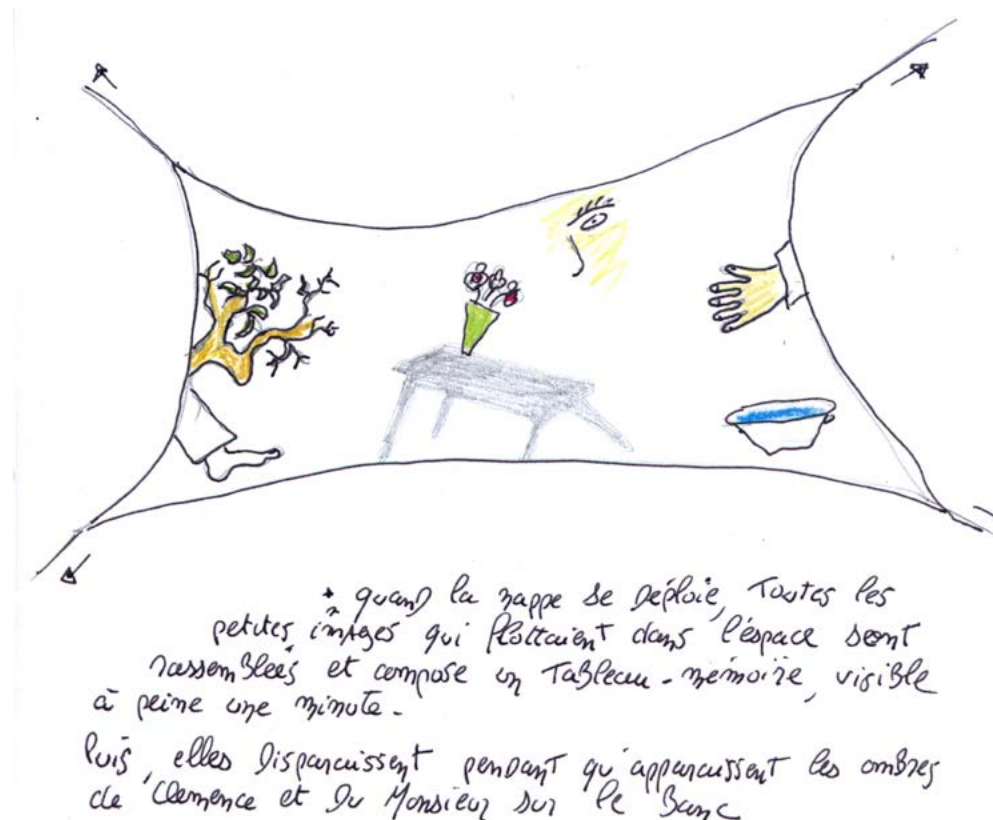 * quand la nappe se déploie, toutes les
petites images qui flottaient dans l'éspace sont
rassemblées et compose un Tableau-mémoire, visible
à peine une minute.
Puis, elles disparaissent pendant qu'apparaissent les ombres
de Clemence et du Monsieur sur le banc